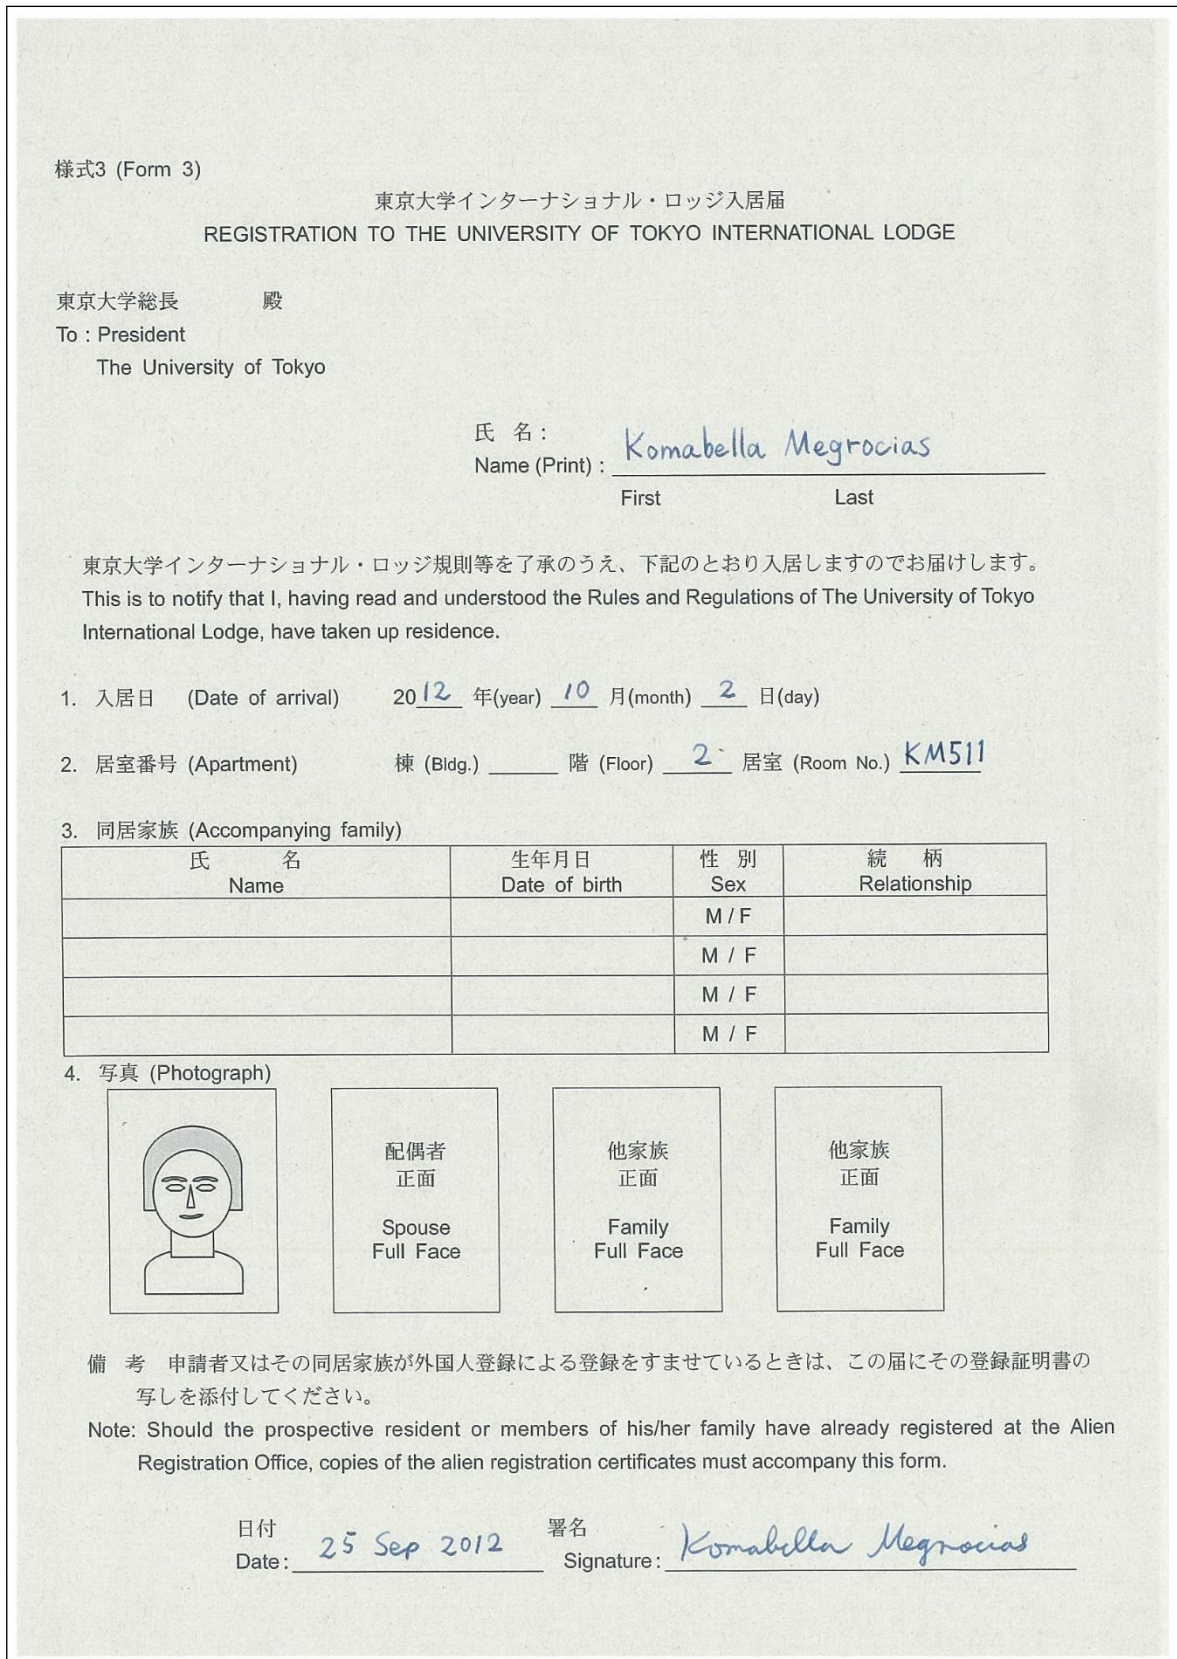 様式3 (Form 3)
東京大学インターナショナル・ロッジ入居届
REGISTRATION TO THE UNIVERSITY OF TOKYO INTERNATIONAL LODGE
東京大学総長 殿
To : President
The University of Tokyo
氏 名 :
Name (Print) : Komabella Megrocias
First Last
東京大学インターナショナル・ロッジ規則等を了承のうえ、下記のとおり入居しますのでお届けします。
This is to notify that I, having read and understood the Rules and Regulations of The University of Tokyo
International Lodge, have taken up residence.
1. 入居日 (Date of arrival) 2012 年(year) 10 月(month) 2 日(day)
2. 居室番号 (Apartment) 棟 (Bldg.) ______ 階 (Floor) 2 居室 (Room No.) KM511
3. 同居家族 (Accompanying family)
氏 名 生年月日 性 別 続 柄
Name Date of birth Sex Relationship
M / F
M / F
M / F
M / F
4. 写真 (Photograph)
配偶者 他家族 他家族
正面 正面 正面
Spouse Family Family
Full Face Full Face Full Face
備 考 申請者又はその同居家族が外国人登録による登録をすませているときは、この届にその登録証明書の
写しを添付してください。
Note: Should the prospective resident or members of his/her family have already registered at the Alien
Registration Office, copies of the alien registration certificates must accompany this form.
日付 署名
Date : 25 Sep 2012 Signature : Komabella Megrocias